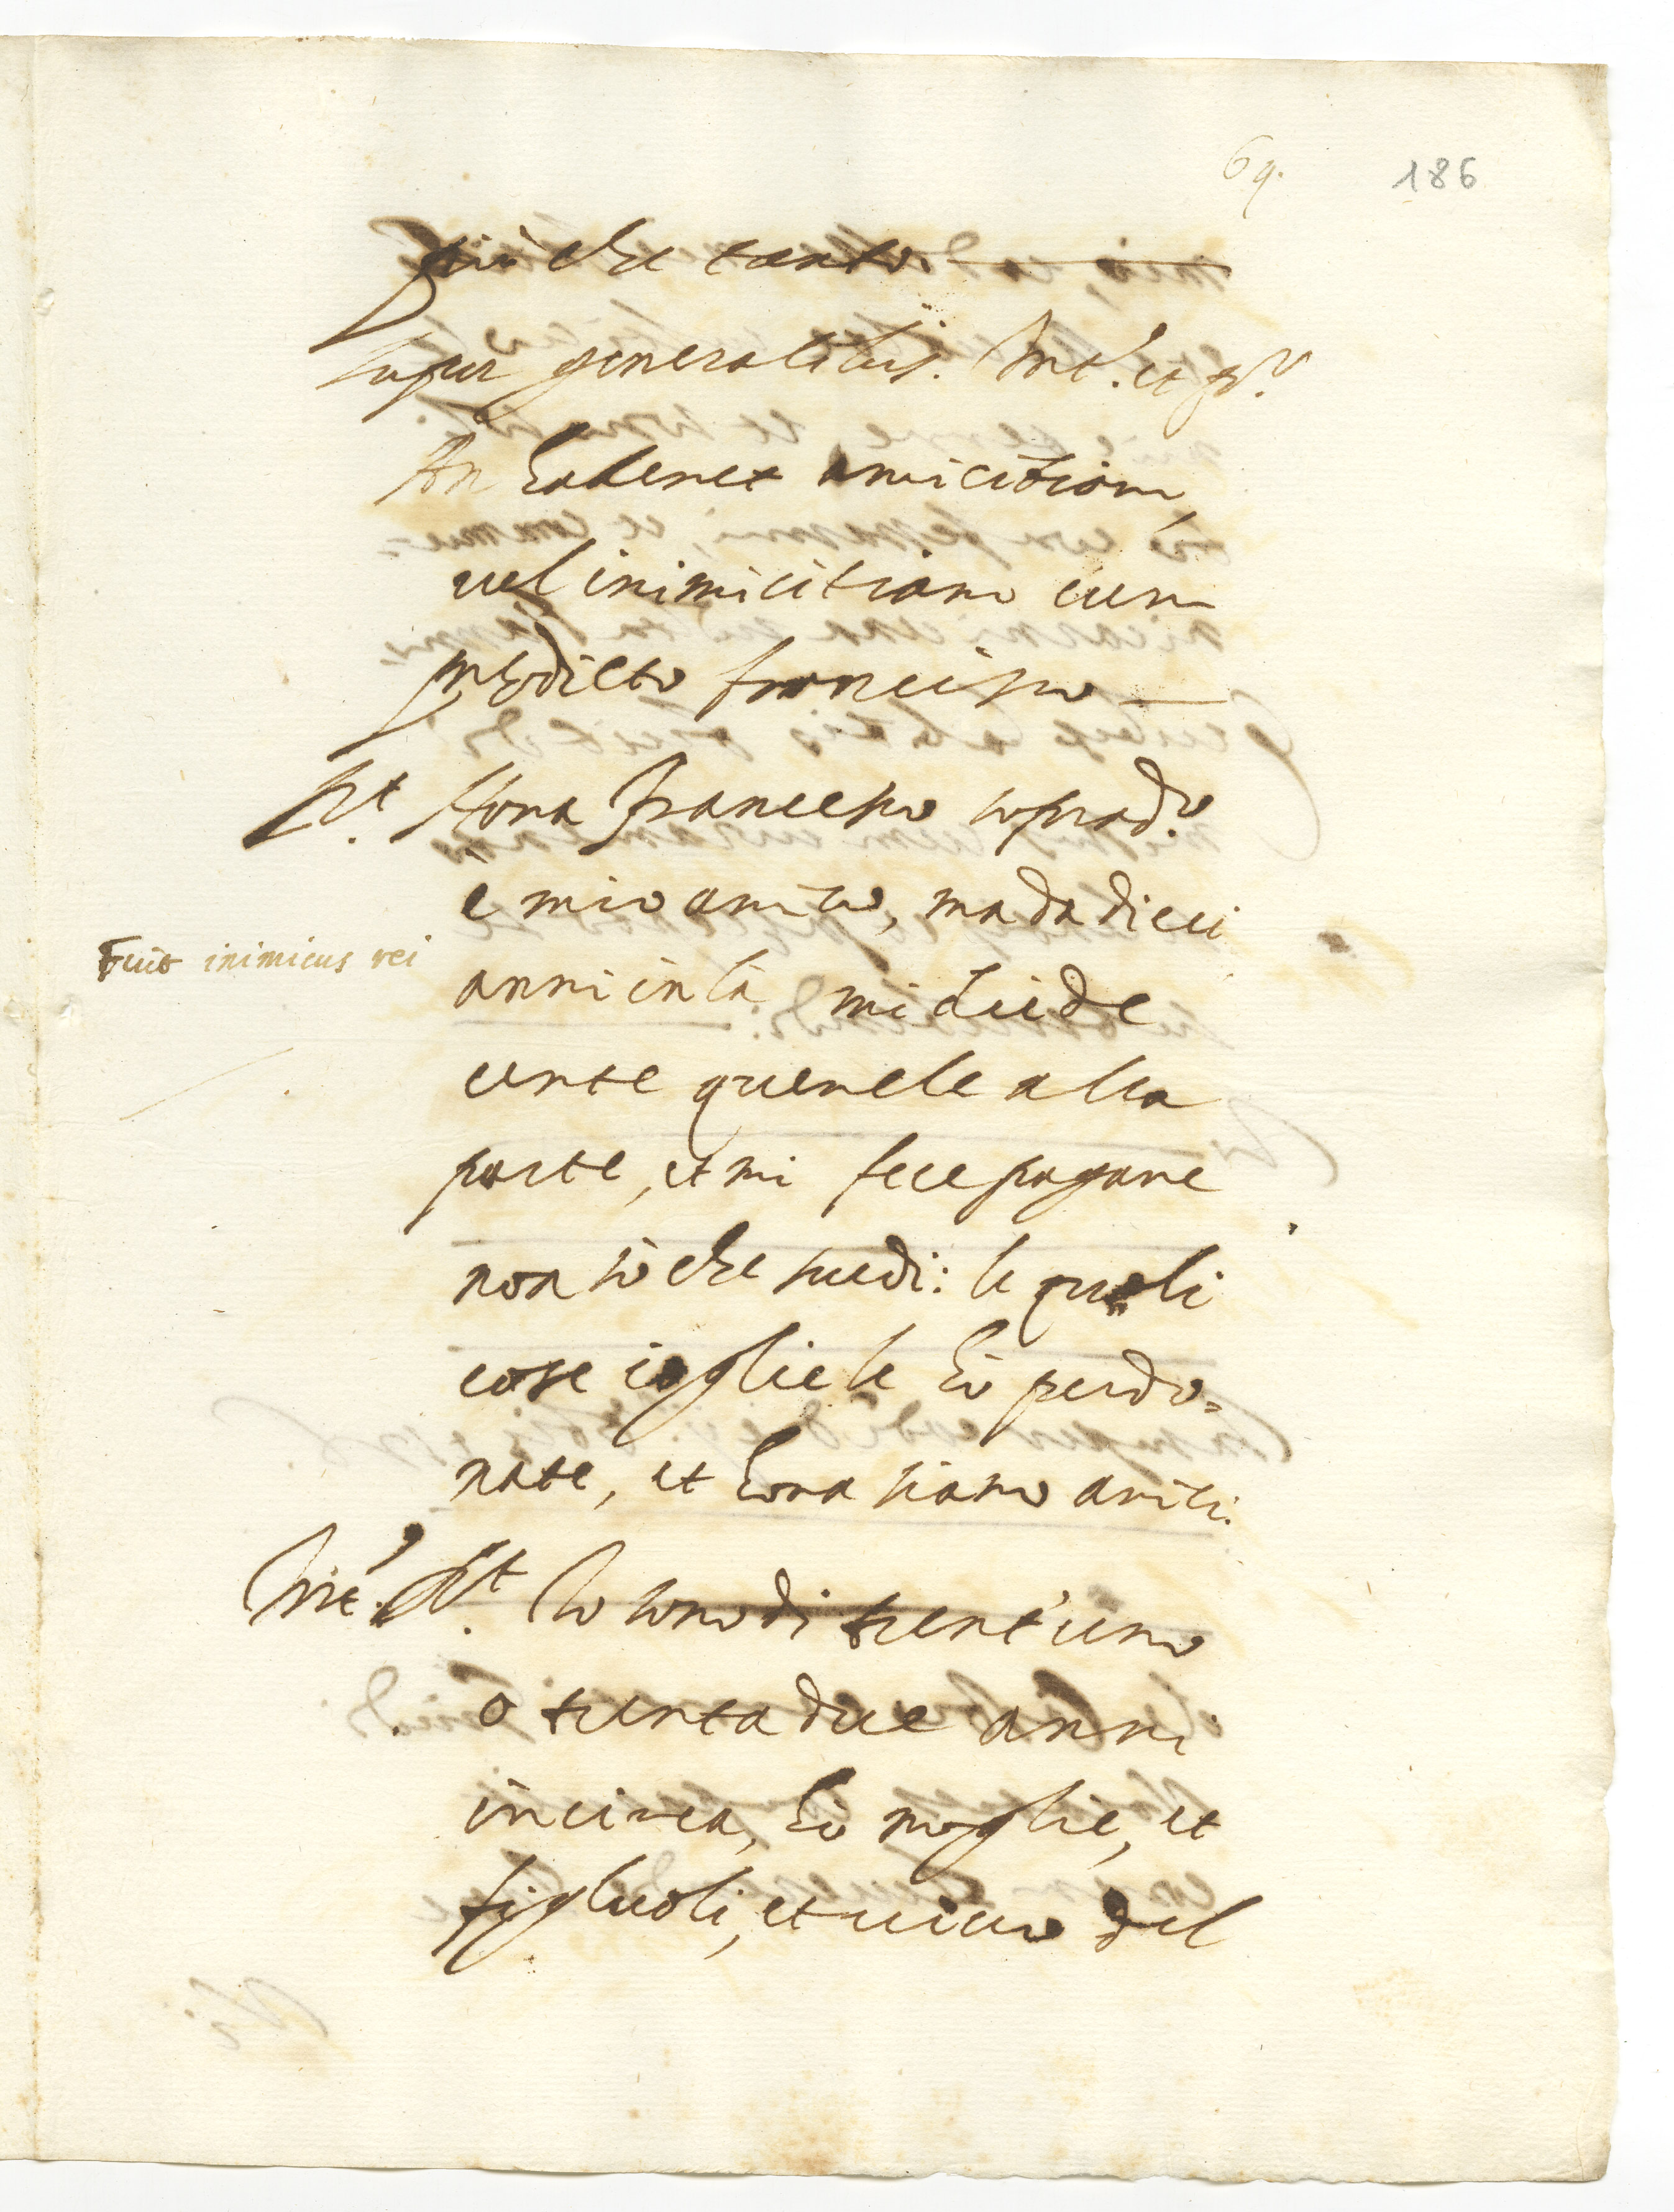 69.
186
più che tanto.
super generalibus. Int.' et p.º
An haberet amicitiam,
vel inimicitiam cum
predicto francisco
R.t Hora Francesco soprad.º
è mio amico, ma da dieci
Fuit inimicus rei
anni in là mi diede
certe querele alla
parte, et mi fece pagare
non sò che scudi: le quali
cose io gliele hò perdo=
nate, et hora siamo amici.
Int.' R.t Io sono di trent'uno
o trentadue anni
incirca, hò moglie, et
figluoli, et vivo del